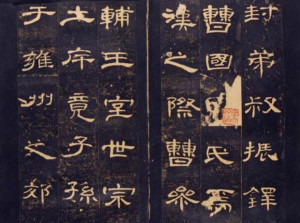 封弟叔振鐸
曹國氏焉
漢之際曹參
輔王室世宗
土斥竟子孫
于雍州之郊